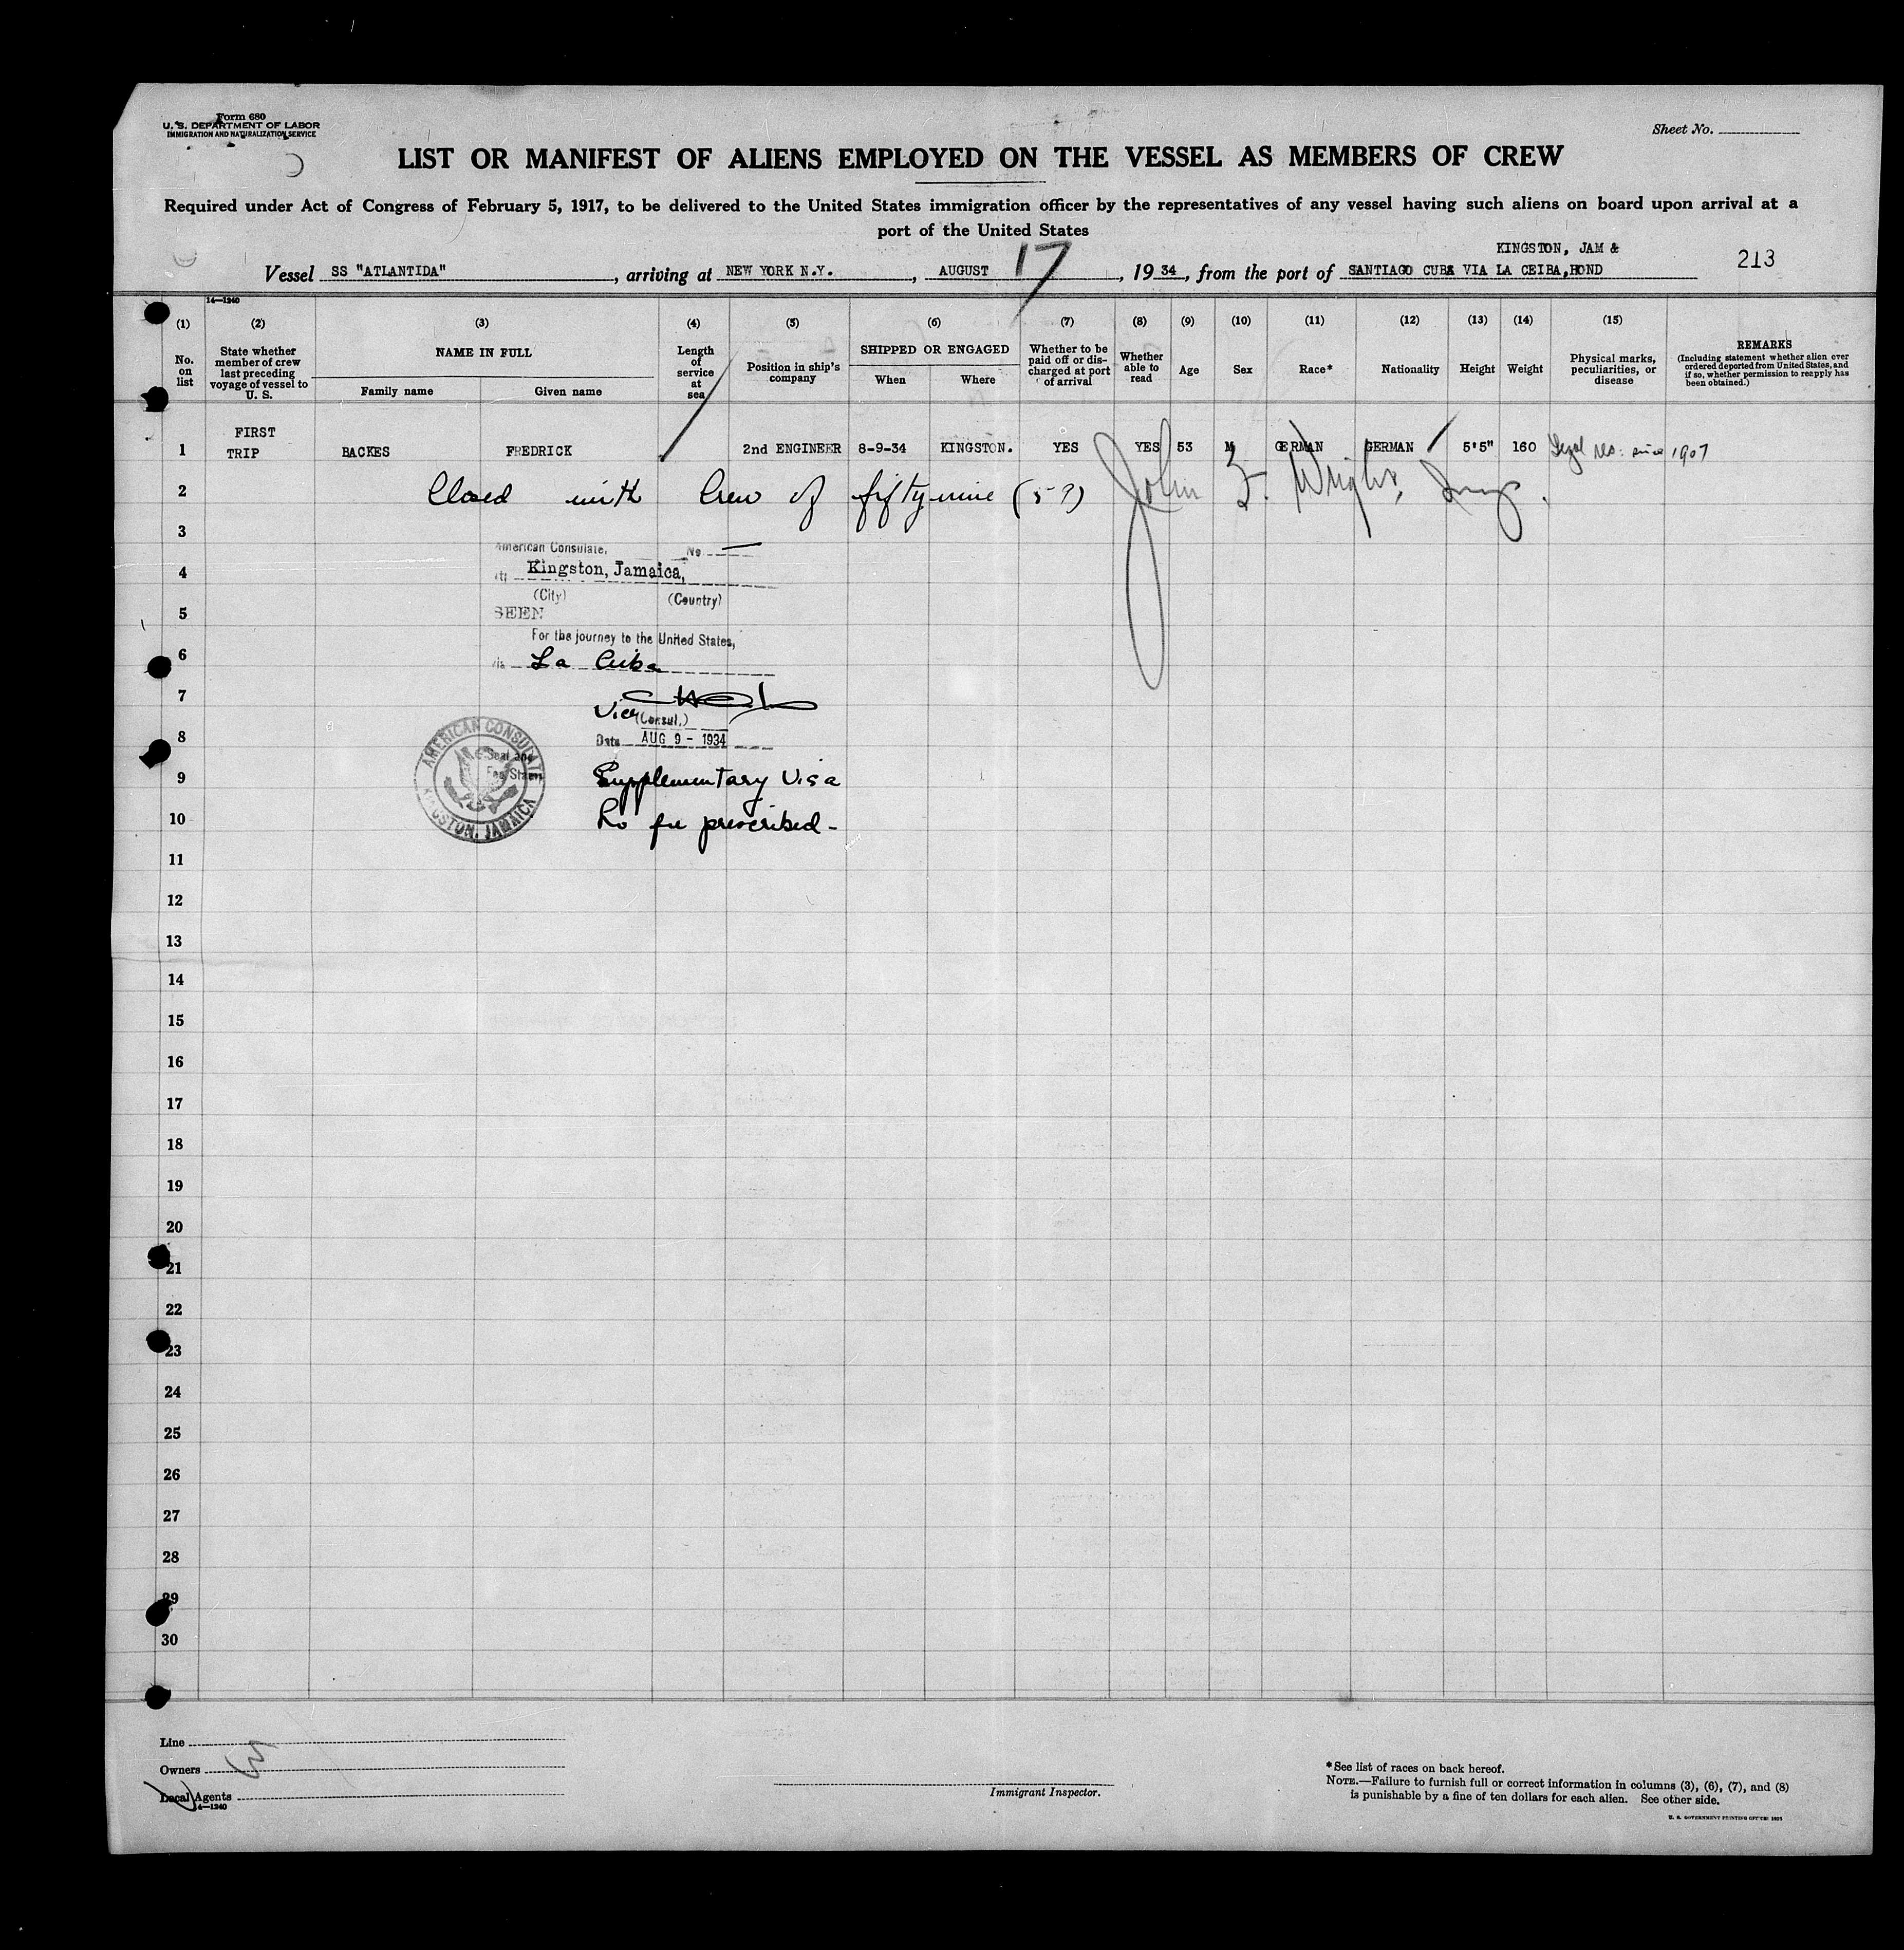 Form 680
U. S. DEPARTMENT OF LABOR
IMMIGRATION AND NATURALIZATION SERVICE
Sheet No.
LIST OR MANIFEST OF ALIENS EMPLOYED ON THE VESSEL AS MEMBERS OF CREW
Required under Act of Congress of February 5, 1917, to be delivered to the United States immigration officer by the representatives of any vessel having such aliens on board upon arrival at a
port of the United States
KINGSTON, JAM &
Vessel SS "ATLANTIDA", arriving at NEW YORK N.Y., AUGUST 17, 1934, from the port of SANTIAGO CUBA VIA LA CEIBA,HOND
213
14—1240
(1) (2) (3) (4) (5) (6) (7) (8) (9) (10) (11) (12) (13) (14) (15)
No. on list
State whether member of crew last preceding voyage of vessel to U. S.
NAME IN FULL
Family name
Given name
Length of service at sea
Position in ship's company
SHIPPED OR ENGAGED
When
Where
Whether to be paid off or discharged at port of arrival
Whether able to read
Age
Sex
Race*
Nationality
Height
Weight
Physical marks, peculiarities, or disease
REMARKS
(Including statement whether alien ever ordered deported from United States, and if so, whether permission to reapply has been obtained.)
1 FIRST TRIP BACKES FREDRICK 2nd ENGINEER 8-9-34 KINGSTON. YES YES 53 M GERMAN GERMAN 5'5" 160 Legal res. since 1907
2 Closed with Crew of fifty-nine (59) John F. Wright, Insp.
3
American Consulate, No
4
Kingston, Jamaica,
(City) (Country)
5
SEEN
For the journey to the United States,
6
via La Ceiba
7
Vice (Consul.)
8
Date AUG 9 - 1934
AMERICAN CONSULATE
KINGSTON, JAMAICA
Seal and
Fee Stamp
9
Supplementary Visa
10
No fee prescribed-
11
12
13
14
15
16
17
18
19
20
21
22
23
24
25
26
27
28
29
30
Line
Owners
Local Agents
14—1240
Immigrant Inspector.
*See list of races on back hereof.
NOTE.—Failure to furnish full or correct information in columns (3), (6), (7), and (8)
is punishable by a fine of ten dollars for each alien. See other side.
U. S. GOVERNMENT PRINTING OFFICE: